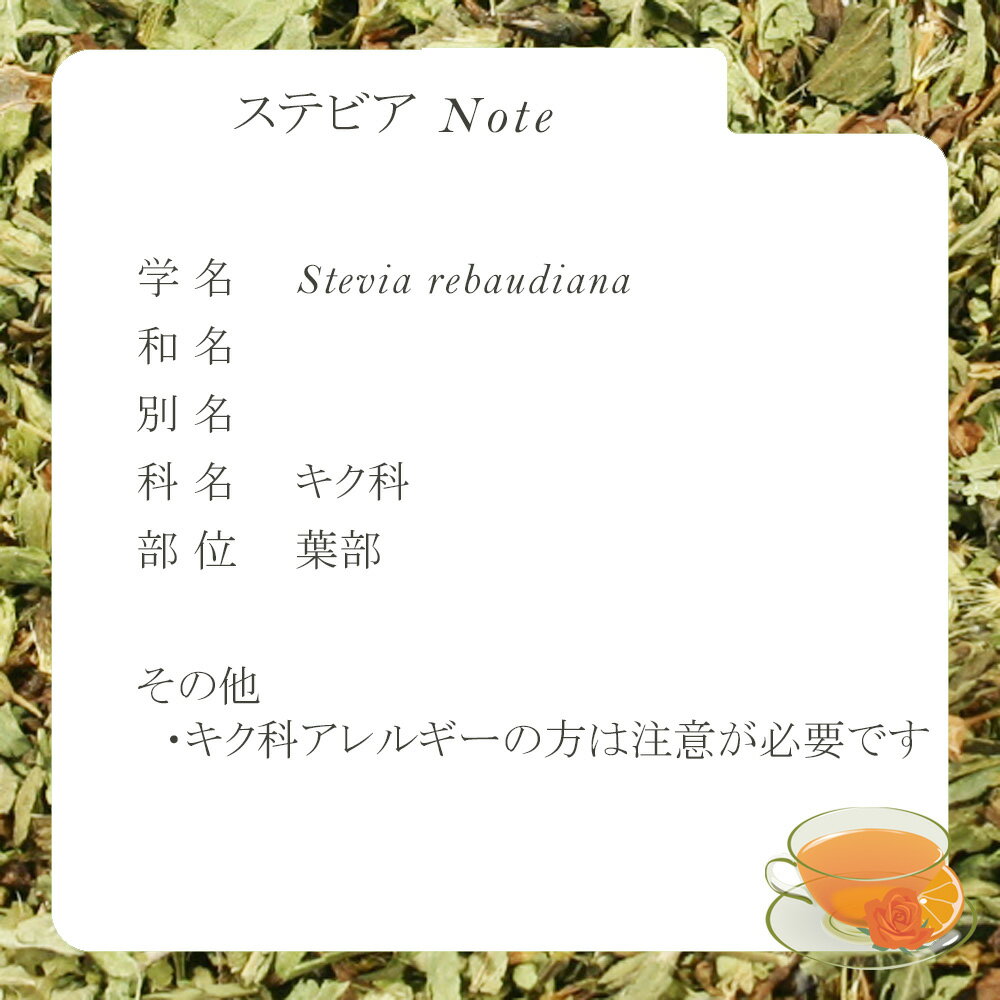 ステビア Note
学名 Stevia rebaudiana
和名
別名
科名 キク科
部位 葉部
その他
・キク科アレルギーの方は注意が必要です